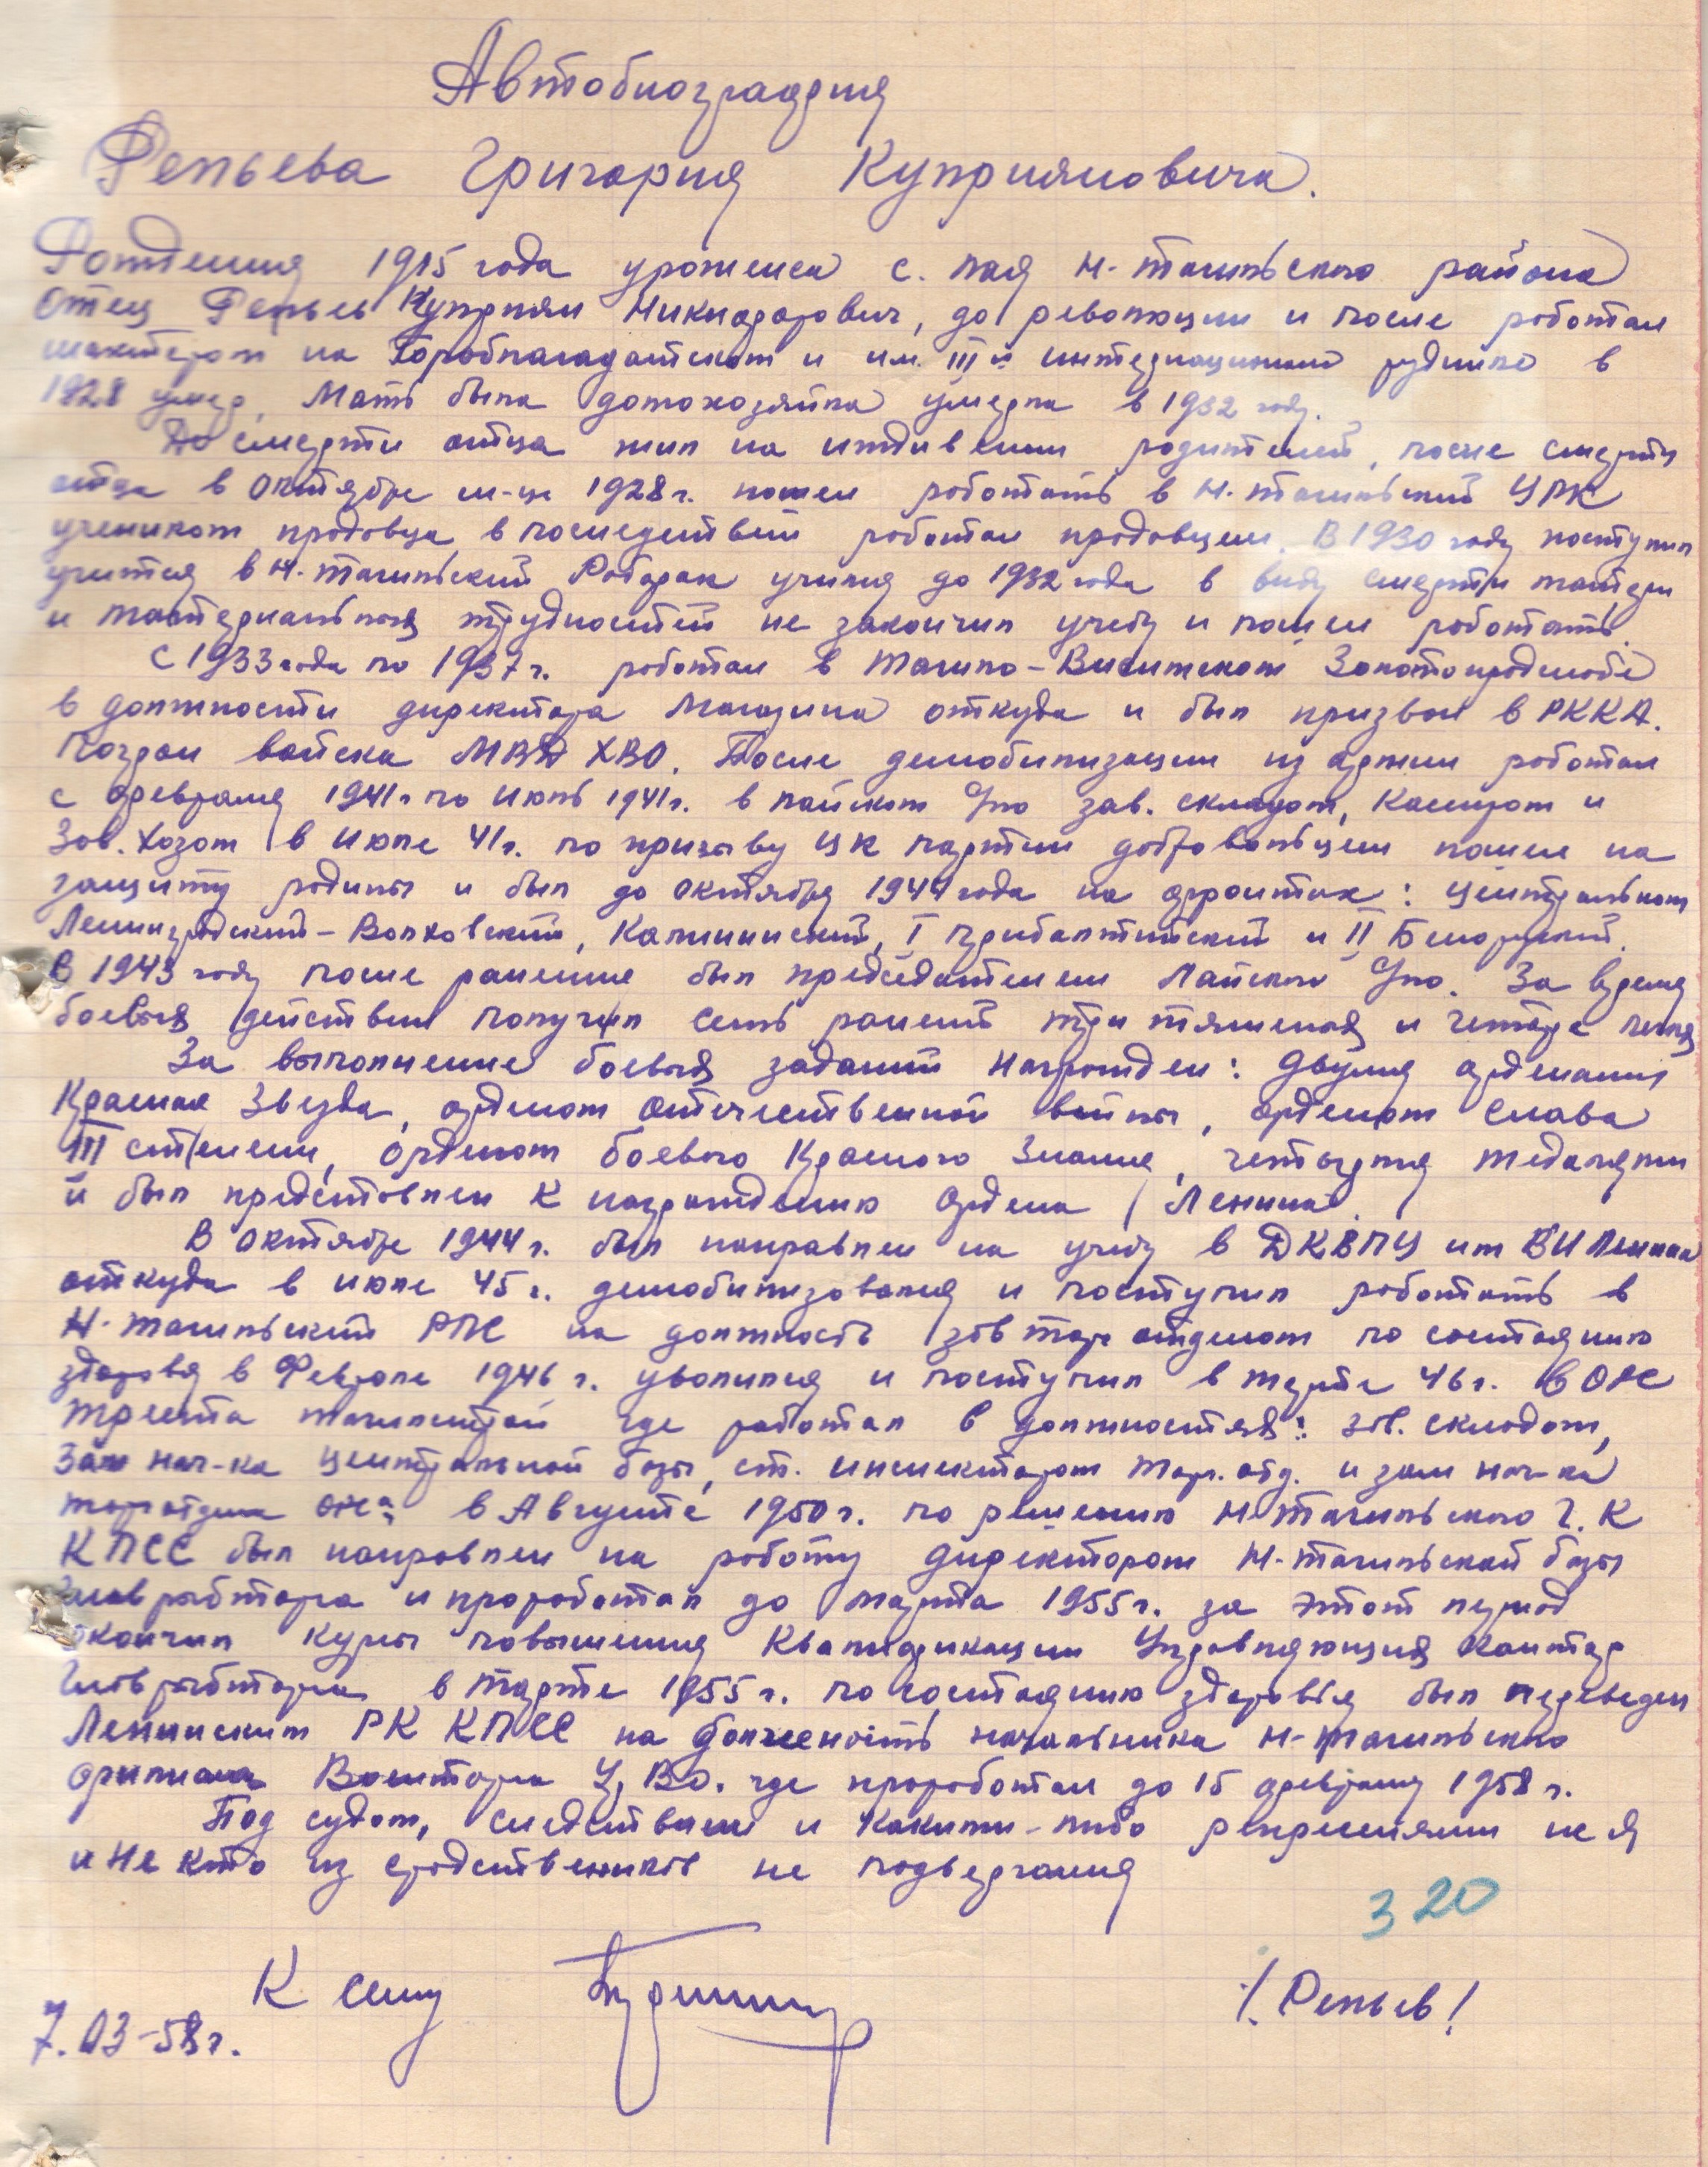 Автобиография
Репьева Григория Куприяновича.
Рождения 1915 года уроженец с. Лая Н-Тагильского района
Отец Репьев Куприян Никифорович, до революции и после роботал
шахтером на Гороблагодатском и им. III й интернационал руднике в
1928 умер, Мать была домохозяйка умерла в 1932 году.
До смерти отца жил на иждивении родителей, после смерти
отца в Октябре м-це 1928 г. пошел роботать в Н-Тагильский ЦРК
учеником продовца в последствии роботал продовцем. В 1930 году поступил
учится в Н-Тагильский Рабфак учился до 1932 года в виду смерти матери
и материальных трудностей не закончил учебу и пошел роботать.
С 1933 года по 1937 г. роботал в Тагило-Висимском Золотопродснабе
в должности директора Магазина откуда и был призван в РККА.
Погран войска МВД ХВО. После демобилизации из армии роботал
с февраля 1941 г по Июль 1941 г. в лайском Спо зав. складом, Кассиром и
Зав. Хозом в Июле 41 г. по призыву ЦК партии добровольцем пошел на
защиту родины и был до Октября 1944 года на фронтах: Центральном
Ленинградский-Волховский, Калининский, I Прибалтийский и II Белоруский.
В 1943 году после ранения был председателем Лайского Спо. За время
боевых действий получил семь ранений три тяжелых и четыре легких
За выполнение боевых заданий Награжден: Двумя орденами
Красная Звезда, орденом Отечественной войны, орденом Слава
III степени, Орденом боевого Красного Знамя, четырмя медалями
и был представлен к награждению Ордена Ленина.
В Октябре 1944 г. был направлен на учебу в ДКВПУ им ВИ Ленина
откуда в Июле 45 г. демобилизовался и поступил роботать в
Н-Тагильский РПС на должность зав торг отделом по состоянию
здоровя в Феврале 1946 г. уволился и поступил в марте 46 г. в ОРС
треста тагилстрой где работал в должностях: зав. складом,
Зам нач-ка Центральной базы, ст. инспектором торг. отд. и зам нач-ка
торготдела ОРСа в Августе 1950 г. по решению Н-Тагильского Г.К
КПСС был направлен на роботу Директором Н-Тагильской базы
Главрыбторга и проработал до Марта 1955 г. за этот период
Окончил курсы повышения Квалификации Управляющих Контор
Главрыбторга в Марте 1955 г. по состоянию здоровья был переведен
Ленинским РК КПСС на должность начальника Н-Тагильского
филиала Военторга У, ВО. где проработал до 15 февраля 1958 г.
Под судом, следствием и Какими-либо репрессиями не я
и Не кто из сродственников не подвергался
320
К сему
/. Репьев /
7. 03-58 г.